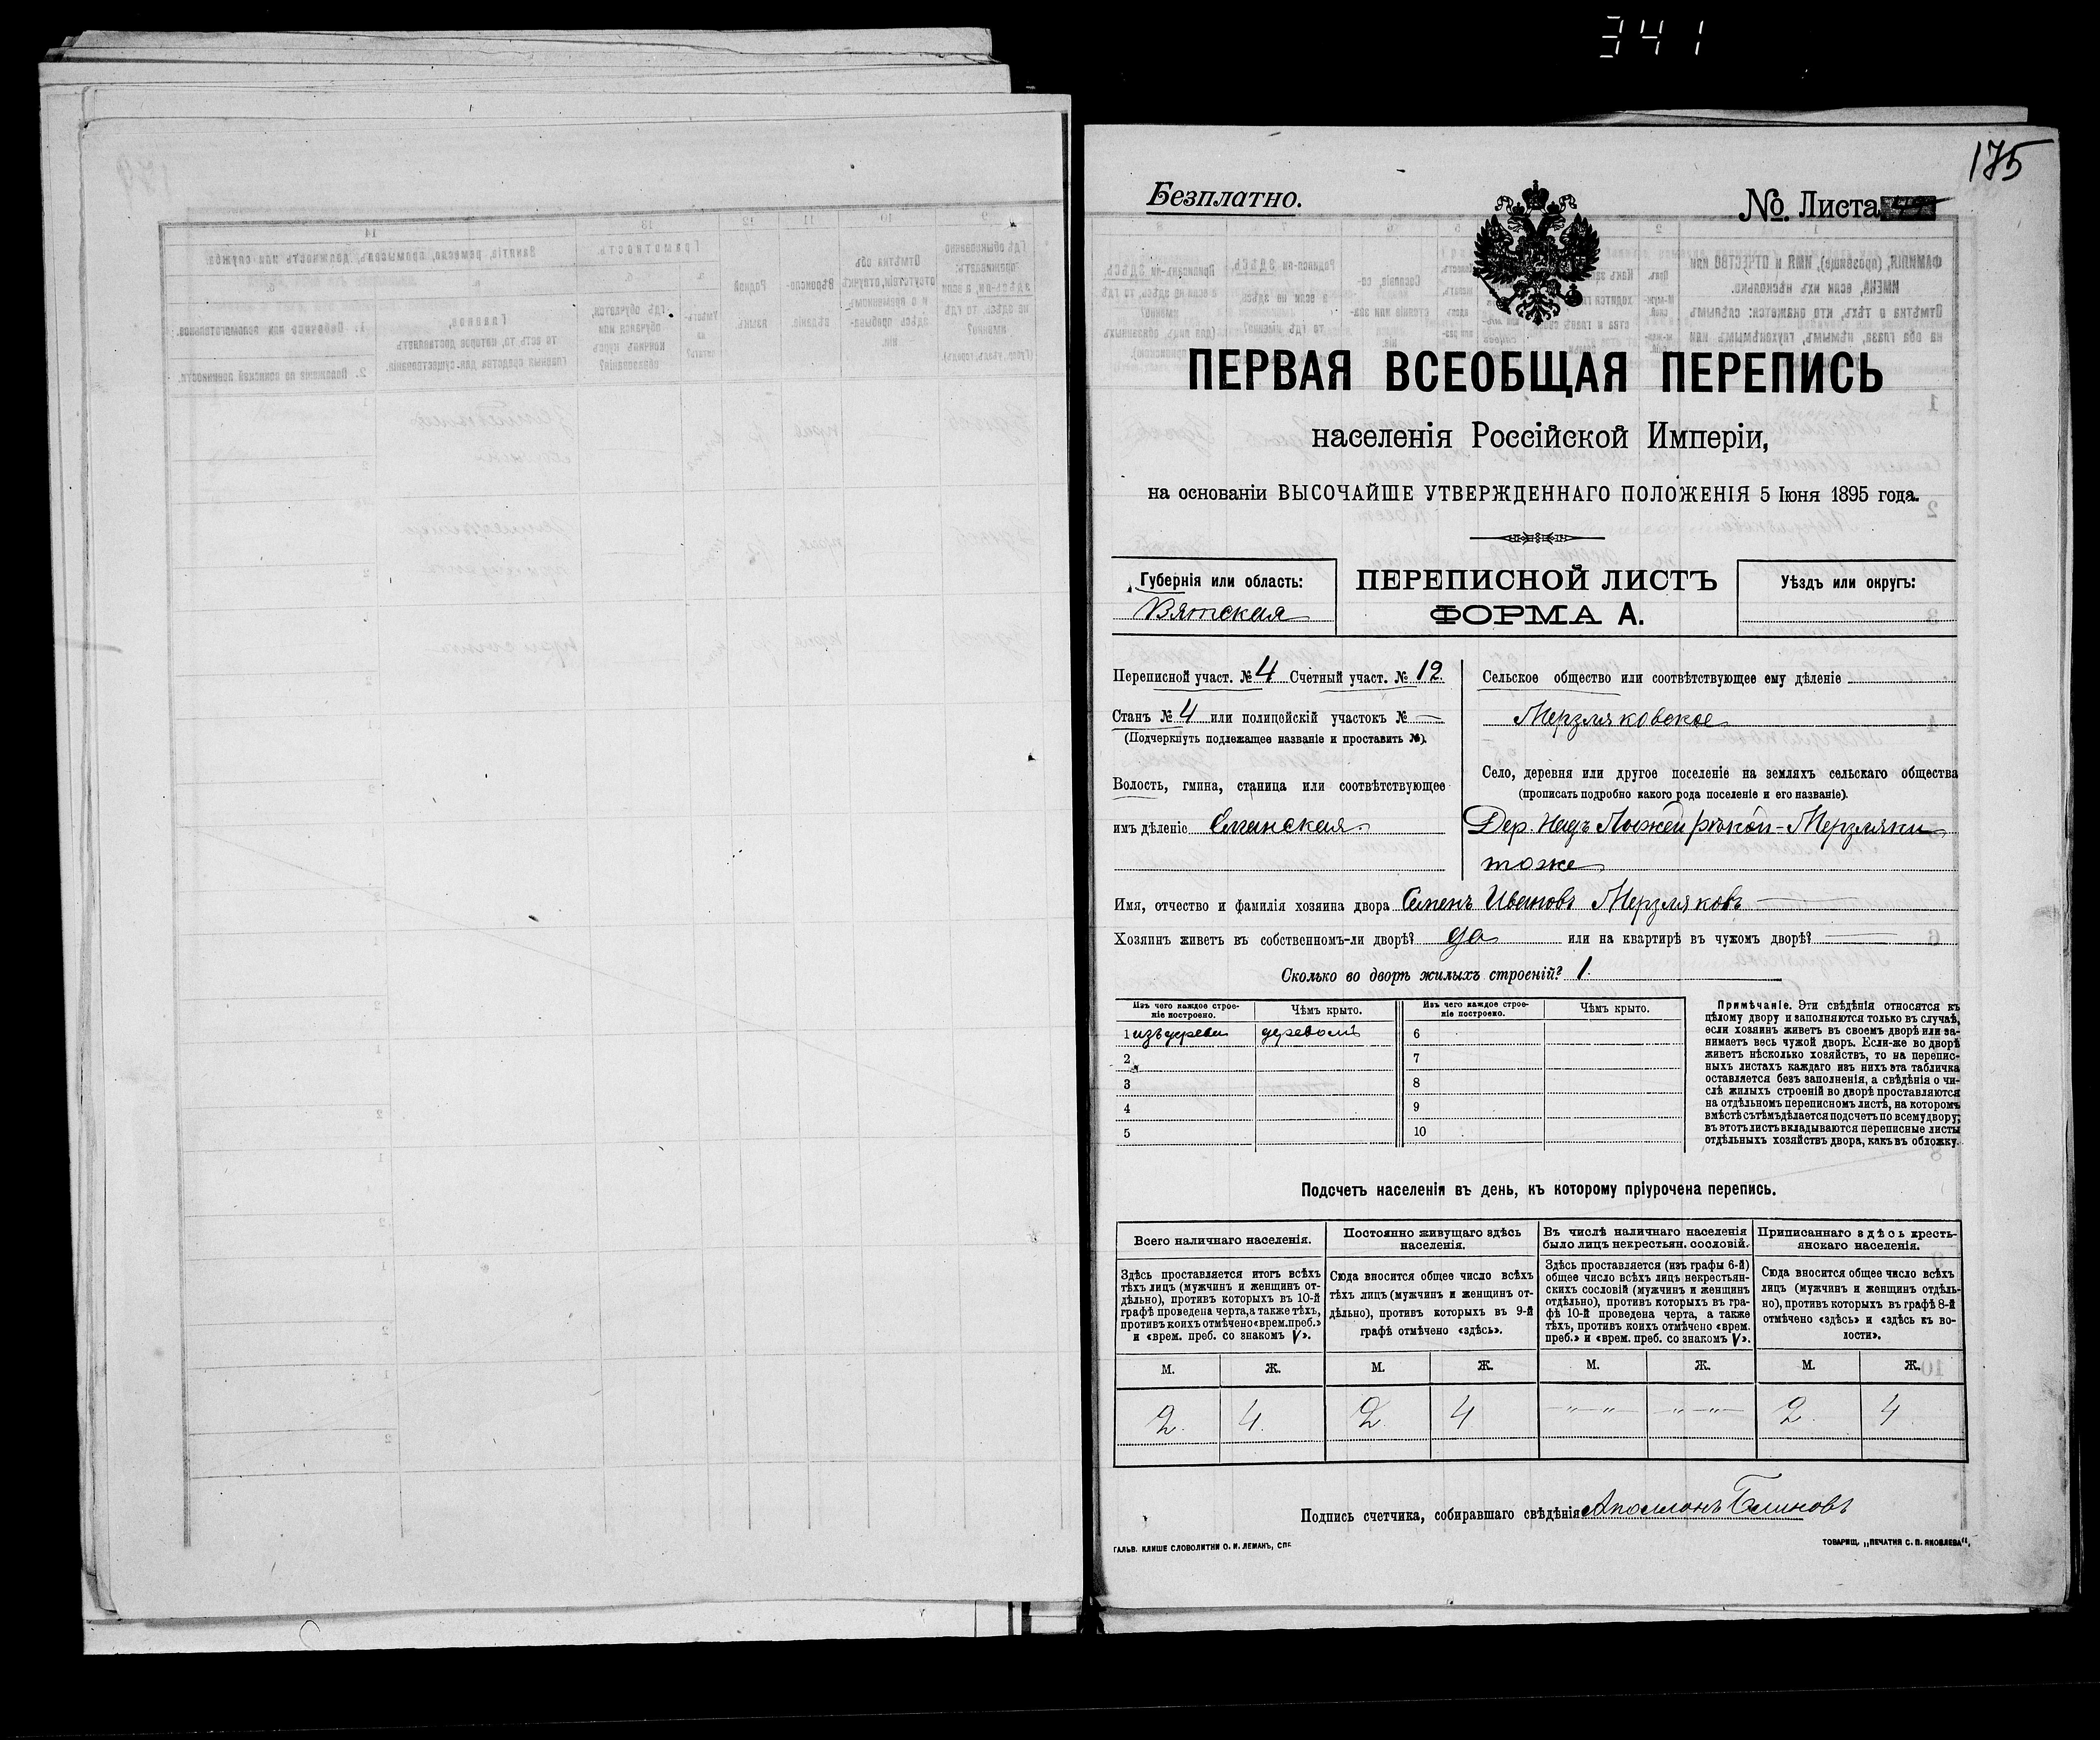 341
175
Безплатно.
№ Листа
ПЕРВАЯ ВСЕОБЩАЯ ПЕРЕПИСЬ
населенія Россійской Имперіи,
на основаніи ВЫСОЧАЙШЕ УТВЕРЖДЕННАГО ПОЛОЖЕНІЯ 5 Іюня 1895 года.
Губернія или область:
Вятская
ПЕРЕПИСНОЙ ЛИСТЪ
ФОРМА А.
Уѣздъ или округъ:
Переписной участ. № 4 Счетный участ. № 12
Станъ № 4 или полицейскій участокъ № —
(Подчеркнуть подлежащее названіе и проставить №).
Волость, гмина, станица или соотвѣтствующее
имъ дѣленіе
Сельское общество или соотвѣтствующее ему дѣленіе
Мерзляковское
Село, деревня или другое поселеніе на земляхъ сельскаго общества
(прописать подробно какого рода поселеніе и его названіе).
Дер. Надъ рѣкой - Мерзляки
тоже
Имя, отчество и фамилія хозяина двора Семенъ Ивановъ Мерзляковъ
Хозяинъ живетъ въ собственномъ-ли дворѣ? да или на квартирѣ въ чужомъ дворѣ? —
Сколько во дворѣ жилыхъ строеній? 1.
Изъ чего каждое строе-
ніе построено.
Чѣмъ крыто.
Изъ чего каждое строе-
ніе построено.
Чѣмъ крыто.
1 изъ дерева деревомъ 6
2 7
3 8
4 9
5 10
Примѣчаніе. Эти свѣдѣнія относятся къ
цѣлому двору и заполняются только въ случаѣ,
если хозяинъ живетъ въ своемъ дворѣ или за-
нимаетъ весь чужой дворъ. Если-же во дворѣ
живетъ нѣсколько хозяйствъ, то на перепис-
ныхъ листахъ каждаго изъ нихъ эта табличка
оставляется безъ заполненія, а свѣдѣнія о чи-
слѣ жилыхъ строеній во дворѣ проставляются
на отдѣльномъ переписномъ листѣ, на которомъ
вмѣстѣ съ тѣмъ дѣлается подсчетъ по всему двору;
въ этотъ листъ вкладываются переписные листы
отдѣльныхъ хозяйствъ двора, какъ въ обложку.
Подсчетъ населенія въ день, къ которому пріурочена перепись.
Всего наличнаго населенія.
Здѣсь проставляется итогъ всѣхъ
тѣхъ лицъ (мужчинъ и женщинъ от-
дѣльно), противъ которыхъ въ 10-й
графѣ проведена черта, а также тѣхъ,
противъ коихъ отмѣчено «врем. преб.»
и «врем. преб. со знакомъ V».
Постоянно живущаго здѣсь
населенія.
Сюда вносится общее число всѣхъ
тѣхъ лицъ (мужчинъ и женщинъ от-
дѣльно), противъ которыхъ въ 9-й
графѣ отмѣчено «здѣсь».
Въ числѣ наличнаго населенія
было лицъ некрестьян. сословій.
Здѣсь проставляется (изъ графы 6-й)
общее число всѣхъ лицъ некрестьян-
скихъ сословій (мужчинъ и женщинъ
отдѣльно), противъ которыхъ въ гра-
фѣ 10-й проведена черта, а также
тѣхъ, противъ коихъ отмѣчено «врем.
преб.» и «врем. преб. со знакомъ V».
Приписаннаго здѣсь кресть-
янскаго населенія.
Сюда вносится общее число всѣхъ
лицъ (мужчинъ и женщинъ отдѣль-
но), противъ которыхъ въ графѣ 8-й
отмѣчено «здѣсь» и «здѣсь къ во-
лости».
М. Ж. М. Ж. М. Ж. М. Ж.
2. 4. 2. 4 —"—"— —"—"— 2. 4
Подпись счетчика, собиравшаго свѣдѣнія Аполлонъ Блиновъ
ГАЛЬВ. КЛИШЕ СЛОВОЛИТНИ О. И. ЛЕМАНЪ, СПБ
ТОВАРИЩ. „ПЕЧАТНЯ С. П. ЯКОВЛЕВА“.